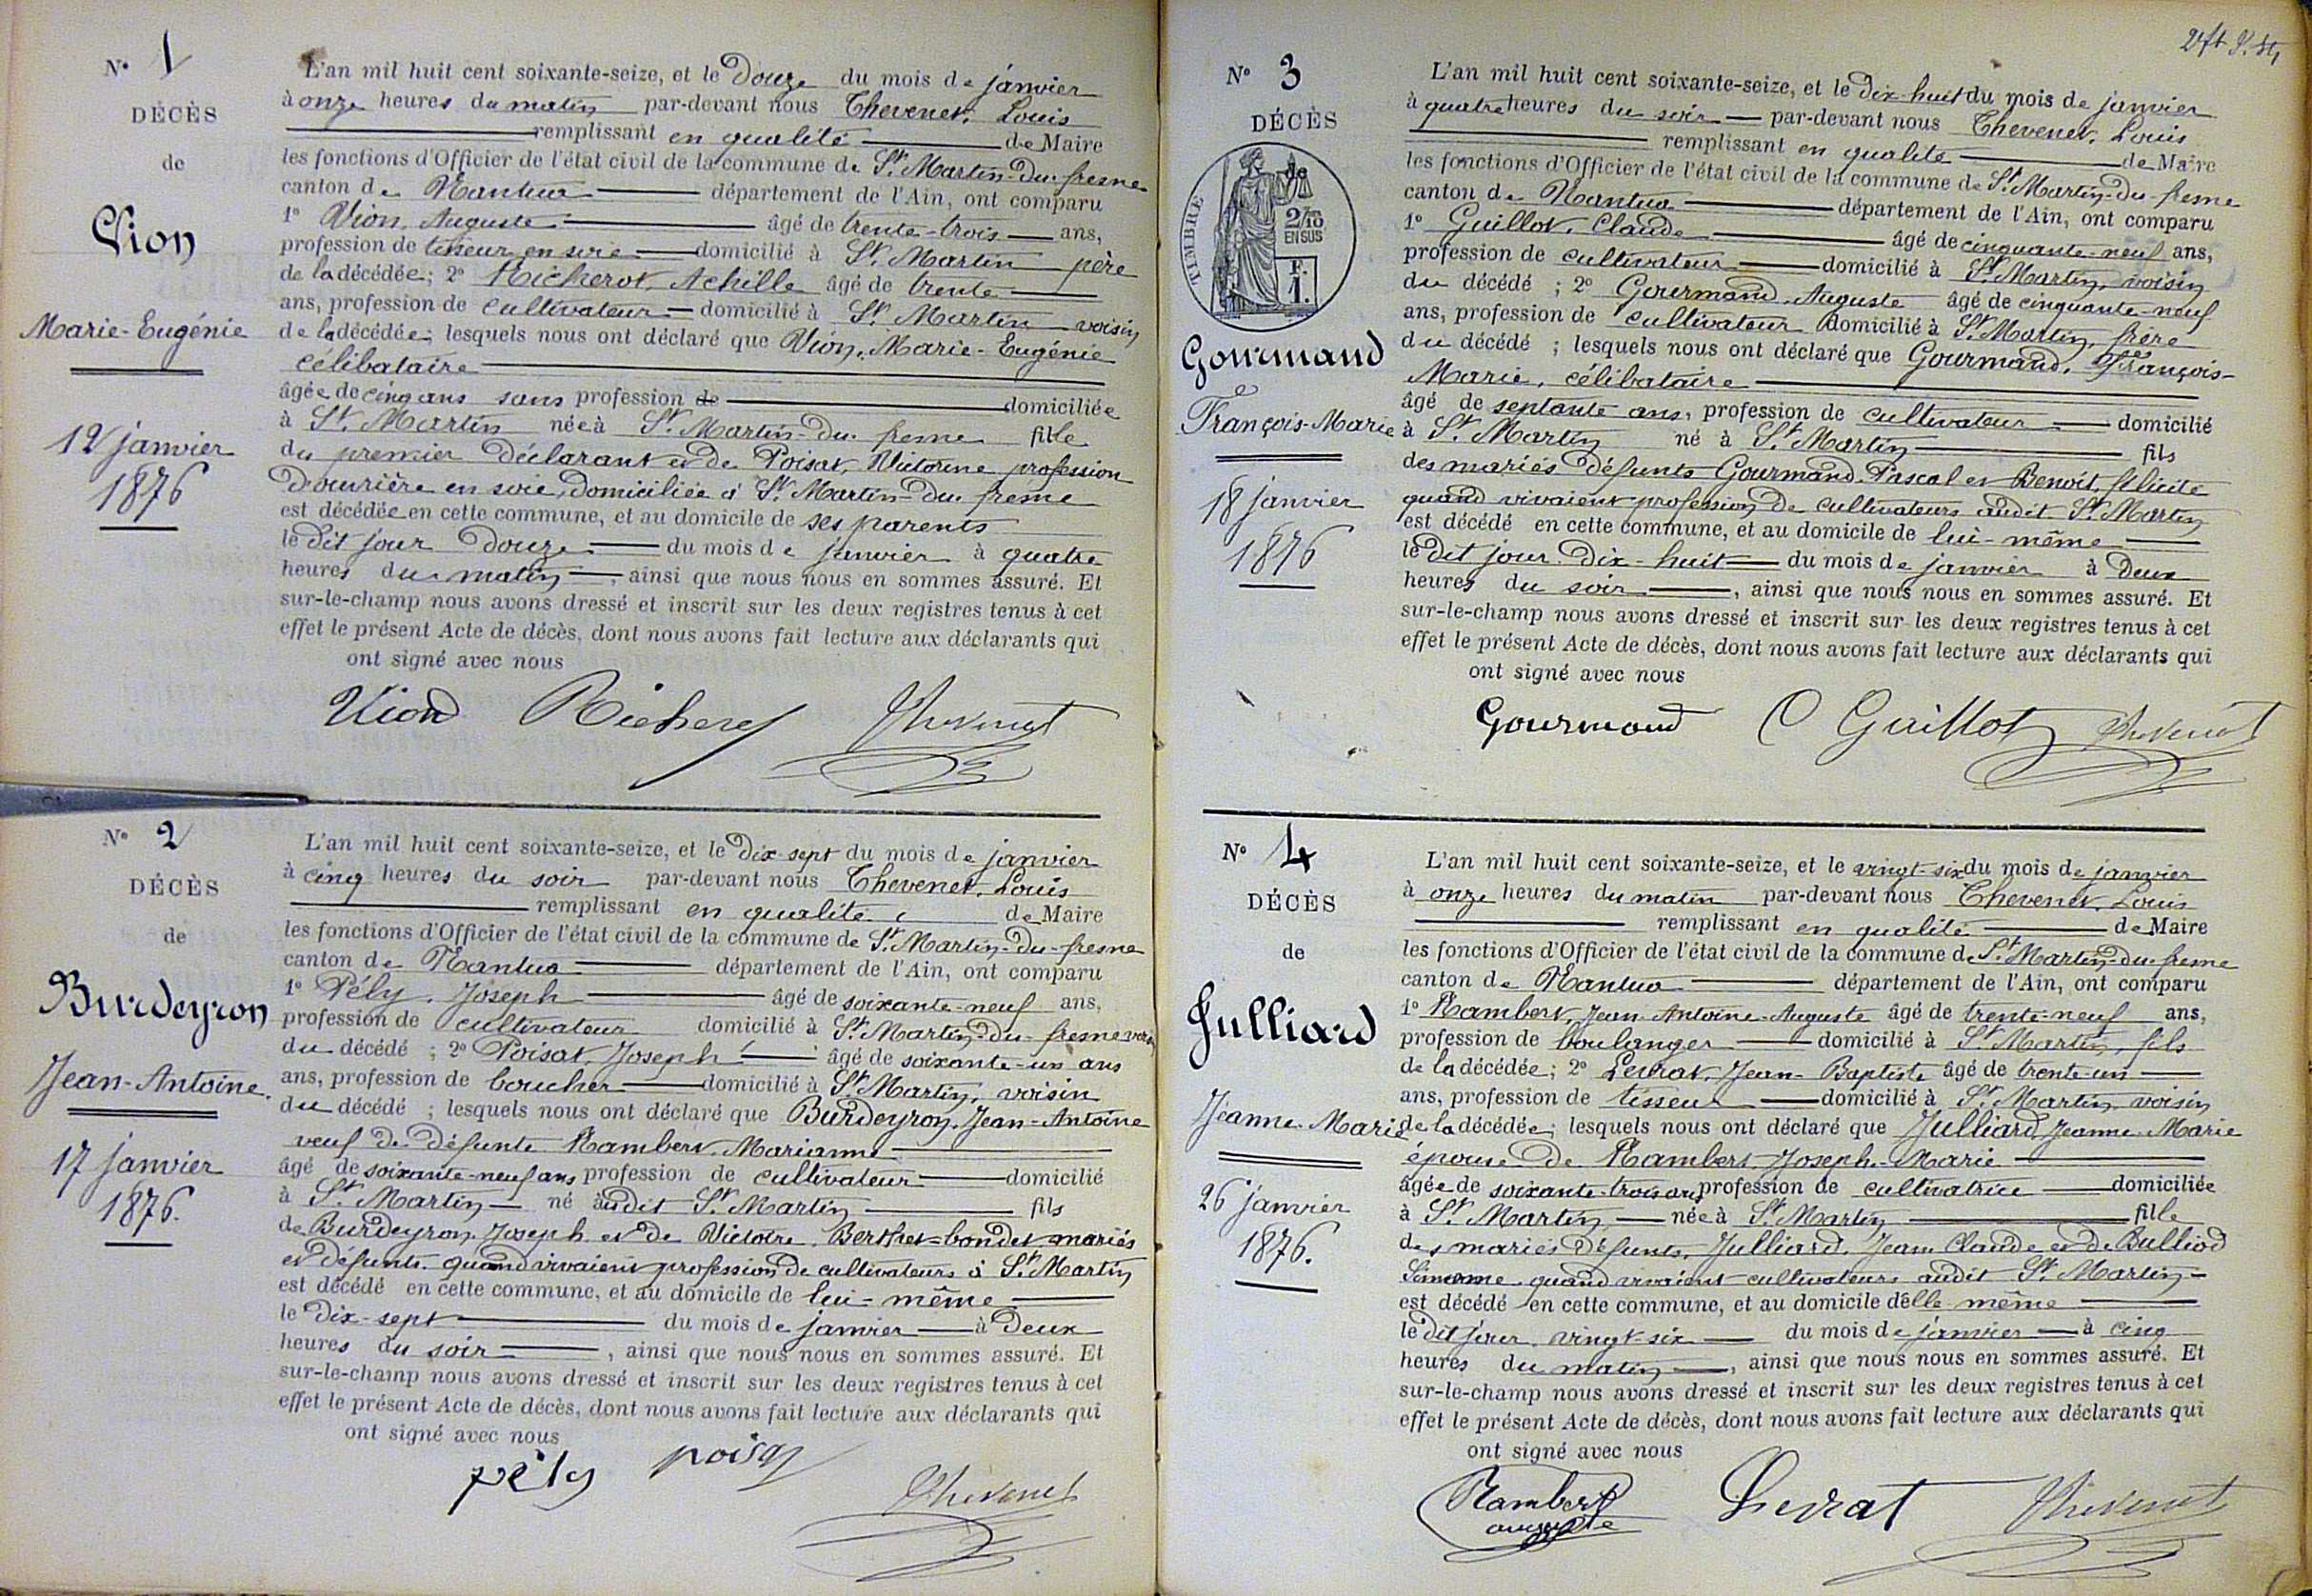 N° 1
DÉCÈS
de
Vion
Marie-Eugénie
12 janvier
1876
L'an mil huit cent soixante-seize, et le douze du mois de janvier
à onze heures du matin par-devant nous Thevenet, Louis
remplissant en qualité de Maire
les fonctions d'Officier de l'état civil de la commune de St. Martin-du-fresne
canton de Nantua département de l'Ain, ont comparu
1° Vion, Auguste âgé de trente-trois ans,
profession de tisseur en soie domicilié à St. Martin père
de la décédée; 2° Richerot, Achille âgé de trente
ans, profession de cultivateur domicilié à St. Martin voisin
de la décédée; lesquels nous ont déclaré que Vion, Marie-Eugénie
célibataire
âgée de cinq ans sans profession de domiciliée
à St. Martin née à St. Martin-du-fresne fille
du premier déclarant et de Poisat, Victorine profession
d'ouvrière en soie, domiciliée à St. Martin-du-fresne
est décédée en cette commune, et au domicile de ses parents
le dit jour douze du mois de janvier à quatre
heures du matin, ainsi que nous nous en sommes assuré. Et
sur-le-champ nous avons dressé et inscrit sur les deux registres tenus à cet
effet le présent Acte de décès, dont nous avons fait lecture aux déclarants qui
ont signé avec nous
Vion Richerot Thevenet
N° 2
DÉCÈS
de
Burdeyron
Jean-Antoine.
17 janvier
1876.
L'an mil huit cent soixante-seize, et le dix-sept du mois de janvier
à cinq heures du soir par-devant nous Thevenet, Louis
remplissant en qualité de Maire
les fonctions d'Officier de l'état civil de la commune de St. Martin-du-fresne
canton de Nantua département de l'Ain, ont comparu
1° Pély, Joseph âgé de soixante-neuf ans,
profession de cultivateur domicilié à St. Martin-du-fresne voisin
du décédé ; 2° Poisat, Joseph âgé de soixante-un ans
ans, profession de boucher domicilié à St. Martin, voisin
du décédé ; lesquels nous ont déclaré que Burdeyron, Jean-Antoine
veuf de défunte Rambert, Marianne
âgé de soixante-neuf ans profession de cultivateur domicilié
à St. Martin né audit St. Martin fils
de Burdeyron, Joseph et de Victoire Berthet-bondet mariés
et défunts quand vivaient profession de cultivateurs à St. Martin
est décédé en cette commune, et au domicile de lui-même
le dix-sept du mois de janvier à deux
heures du soir, ainsi que nous nous en sommes assuré. Et
sur-le-champ nous avons dressé et inscrit sur les deux registres tenus à cet
effet le présent Acte de décès, dont nous avons fait lecture aux déclarants qui
ont signé avec nous
pély poisat Thevenet
N° 3
DÉCÈS
de
TIMBRE
2/10
EN SUS
F.
1.
Gourmand
François-Marie
18 janvier
1876
L'an mil huit cent soixante-seize, et le dix-huit du mois de janvier
à quatre heures du soir par-devant nous Thevenet, Louis
remplissant en qualité de Maire
les fonctions d'Officier de l'état civil de la commune de St. Martin-du-fresne
canton de Nantua département de l'Ain, ont comparu
1° Guillot, Claude âgé de cinquante-neuf ans,
profession de cultivateur domicilié à St. Martin, voisin
du décédé ; 2° Gourmand, Auguste âgé de cinquante-neuf
ans, profession de cultivateur domicilié à St. Martin, frère
du décédé ; lesquels nous ont déclaré que Gourmand, François-
Marie, célibataire
âgé de septante ans, profession de cultivateur domicilié
à St. Martin né à St. Martin fils
des mariés défunts Gourmand, Pascal et Benoît, félicité
quand vivaient profession de cultivateurs audit St. Martin
est décédé en cette commune, et au domicile de lui-même
le dit jour dix-huit du mois de janvier à deux
heures du soir, ainsi que nous nous en sommes assuré. Et
sur-le-champ nous avons dressé et inscrit sur les deux registres tenus à cet
effet le présent Acte de décès, dont nous avons fait lecture aux déclarants qui
ont signé avec nous
Gourmand C Guillot Thevenet
N° 4
DÉCÈS
de
Julliard
Jeanne-Marie
26 janvier
1876.
L'an mil huit cent soixante-seize, et le vingt-six du mois de janvier
à onze heures du matin par-devant nous Thevenet, Louis
remplissant en qualité de Maire
les fonctions d'Officier de l'état civil de la commune de St. Martin-du-fresne
canton de Nantua département de l'Ain, ont comparu
1° Rambert, Jean-Antoine-Auguste âgé de trente-neuf ans,
profession de boulanger domicilié à St. Martin, fils
de la décédée; 2° Levrat, Jean-Baptiste âgé de trente-un
ans, profession de tisseur domicilié à St. Martin, voisin
de la décédée; lesquels nous ont déclaré que Julliard, Jeanne-Marie
épouse de Rambert, Joseph-Marie
âgée de soixante-trois ans profession de cultivatrice domiciliée
à St. Martin née à St. Martin fille
des mariés défunts, Julliard, Jean Claude et de Bulliod
quand vivaient cultivateurs audit St. Martin
est décédé en cette commune, et au domicile d'elle-même
le dit jour vingt-six du mois de janvier à cinq
heures du matin, ainsi que nous nous en sommes assuré. Et
sur-le-champ nous avons dressé et inscrit sur les deux registres tenus à cet
effet le présent Acte de décès, dont nous avons fait lecture aux déclarants qui
ont signé avec nous
Rambert Levrat Thevenet
auguste